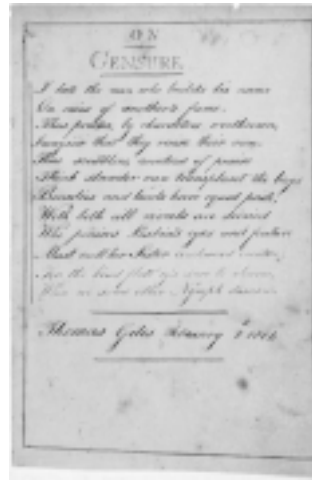 ON
CENSURE
I hate the man who builds his name
On ruins of another's fame.
Thus prudes, by characters o'erthrown,
Imagine that they raise their own.
Thus scribblers, covetous of praise
Think slander can transplant the bays
Beauties and bards have equal pride,
With both all rivals are decried
Who praises Lesbia's eyes and feature
Must call her Sister
For the kind flattery's sure to charm
When we some other Nymph
Thomas Giles